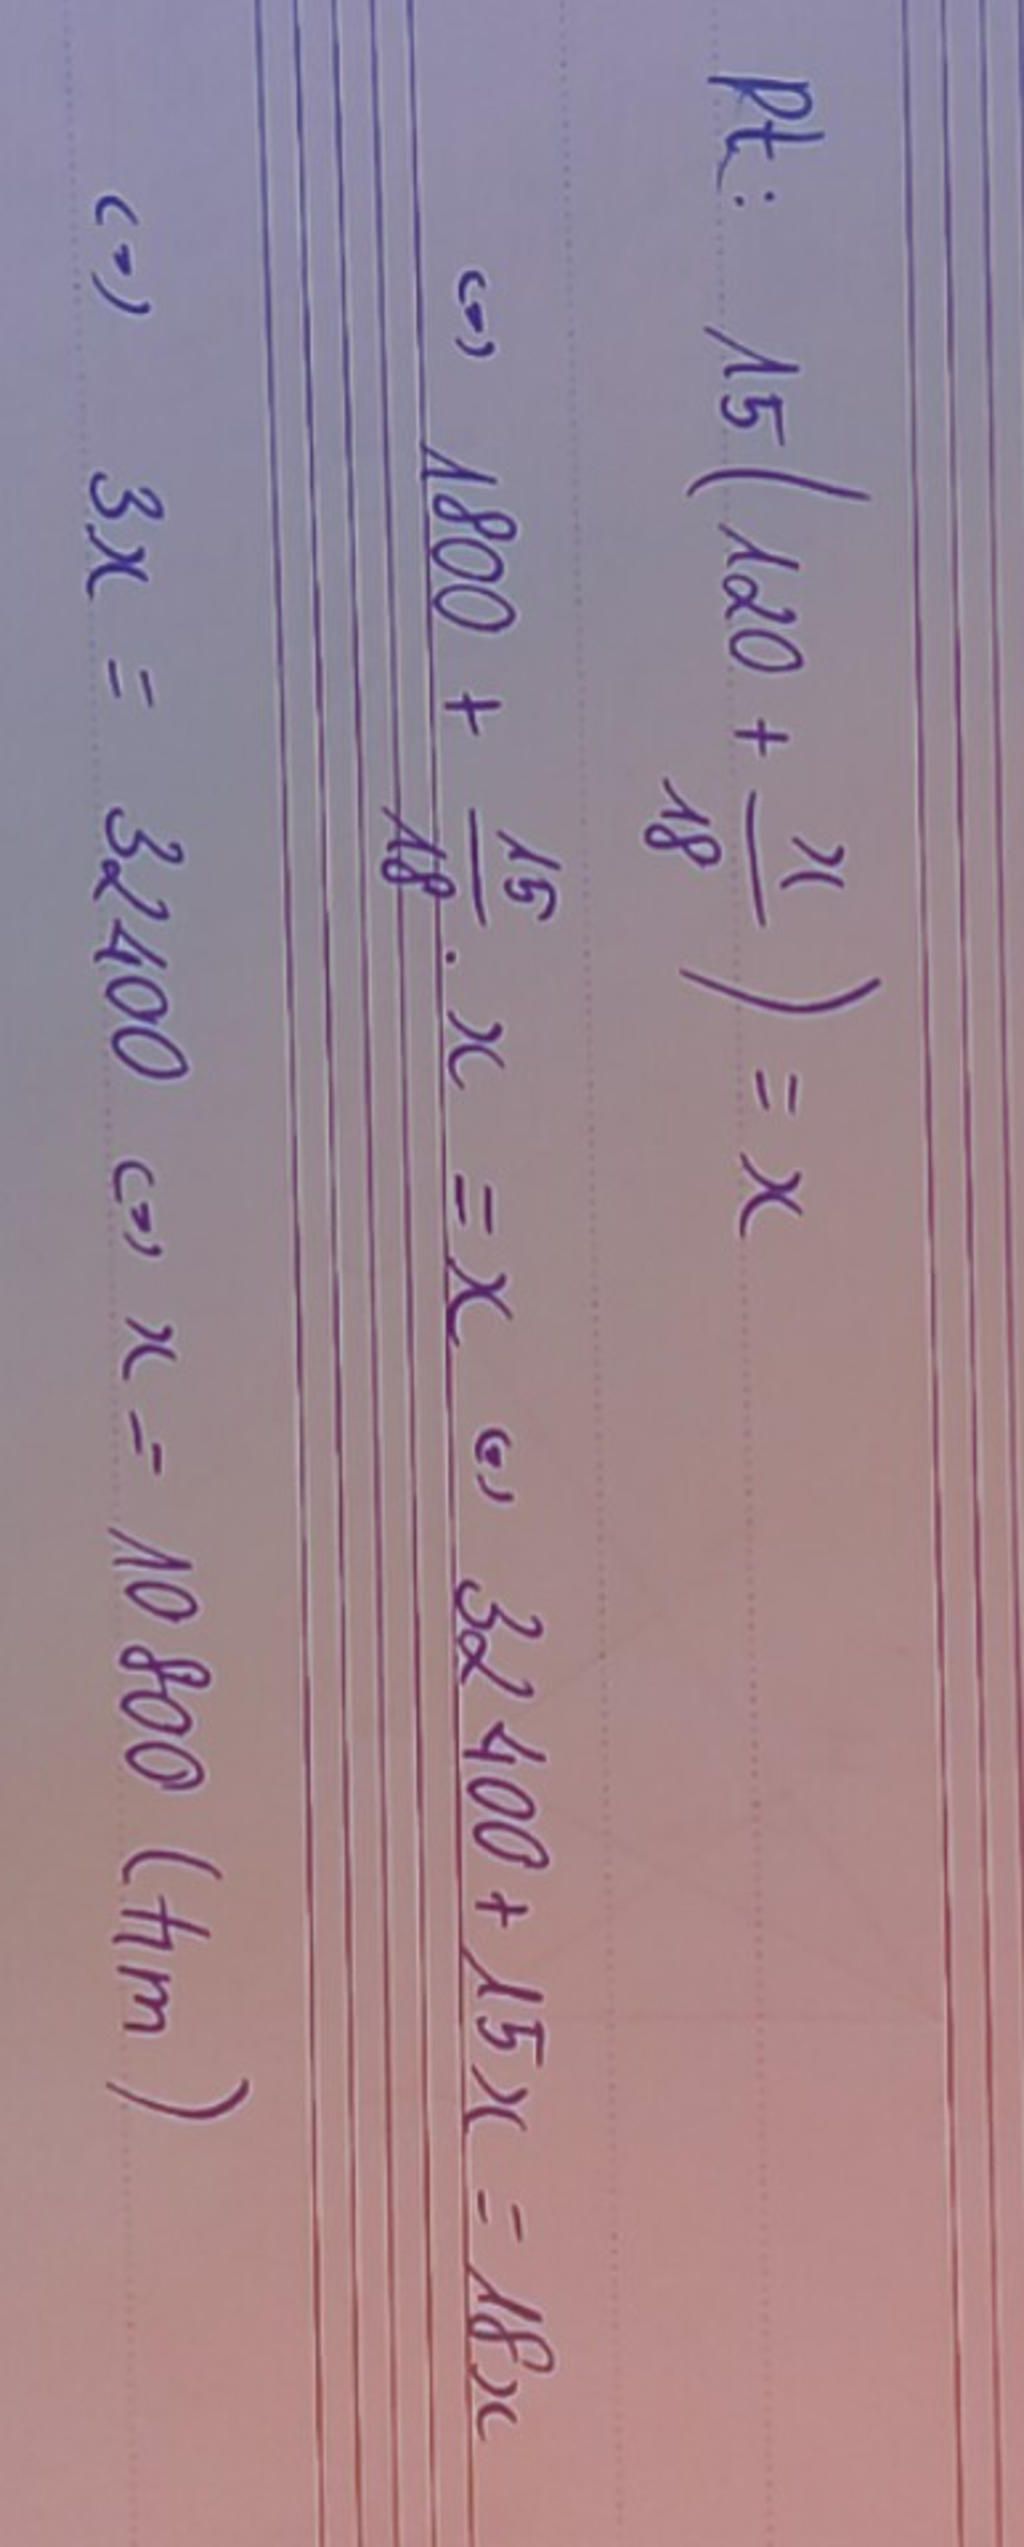 Pt: 15(120 + x/18) = x
<=> 1800 + 15/18 . x = x <=> 32400 + 15x = 18x
<=> 3x = 32400 <=> x = 10800 (tm)